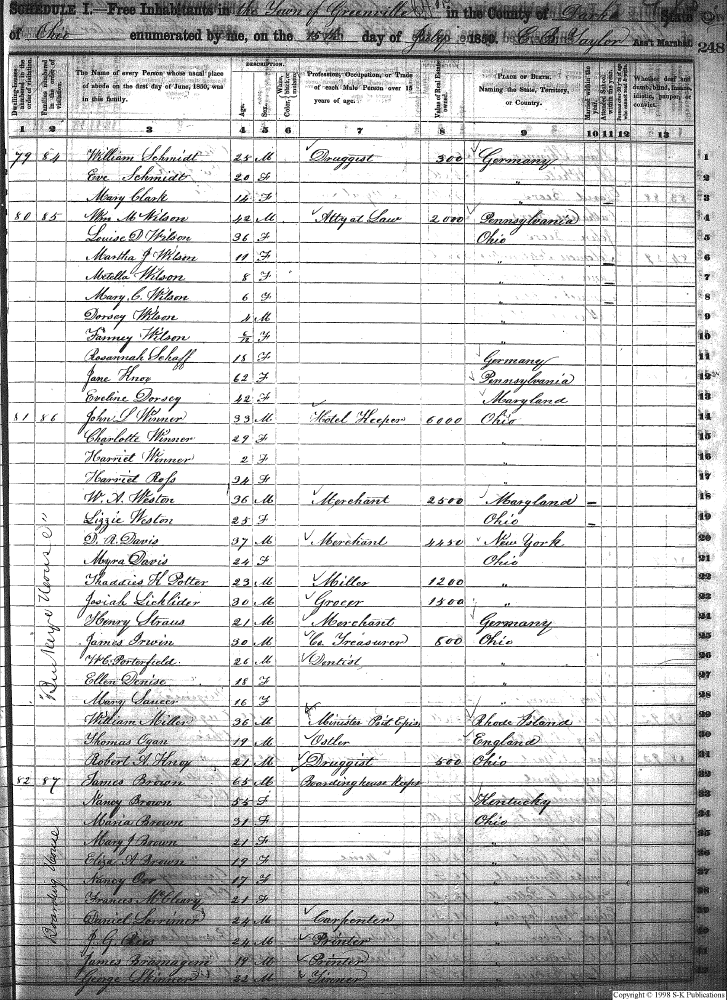 SCHEDULE I.—Free Inhabitants in the Town of Greenville in the County of Darke State
of Ohio enumerated by me, on the 25th day of July 1850. Taylor Ass't Marshal. 248
DESCRIPTION.
Dwelling-houses numbered in the order of visitation. Families numbered in the order of visitation. The Name of every Person whose usual place of abode on the first day of June, 1850, was in this family. Age. Sex. Color, Profession, Occupation, or Trade of each Male Person over 15 years of age. Value of Real Estate owned. PLACE OF BIRTH. Naming the State, Territory, or Country. Married within the year. Attended School within the year. Whether deaf and dumb, blind, insane, idiotic, pauper, or convict.
1 2 3 4 5 6 7 8 9 10 11 12 13
79 84 William Schmidt 25 M Druggist 300 Germany 1
Eve Schmidt 20 F " 2
Mary Clark 14 F " 3
80 85 Wm M Wilson 42 M Atty at Law 2000 Pennsylvania 4
Louise D Wilson 36 F Ohio 5
Martha J Wilson 11 F " 6
Metella Wilson 8 F " 7
Mary C. Wilson 6 F " 8
Dorsey Wilson 4 M " 9
Fanney Wilson F " 10
Rosannah Schaff 18 F Germany 11
Jane Knox 62 F Pennsylvania 12
Eveline Dorsey 42 F Maryland 13
81 86 John L Winner 33 M Hotel Keeper 6000 Ohio 14
Charlotte Winner 29 F " 15
Harriet Winner 2 F " 16
Harriet Ross 34 F " 17
W. A. Weston 36 M Merchant 2500 Maryland 18
Lizzie Weston 25 F Ohio 19
D. R. Davis 37 M Merchant 4450 New York 20
Myra Davis 24 F Ohio 21
Thaddies H Potter 23 M Miller 1200 " 22
Josiah Licklider 30 M Grocer 1500 " 23
Henry Straus 21 M Merchant Germany 24
James Irwin 30 M Co. Treasurer 800 Ohio 25
W. C. Porterfield 26 M Dentist " 26
Ellen Denise 18 F " 27
Mary Saucer 16 F " 28
William Miller 36 M Minister Epis Rhode Island 29
Thomas Ogan 19 M Ostler England 30
Robert A Knox 21 M Druggist 500 Ohio 31
82 87 James Brown 65 M Boarding house Keeper " 32
Nancy Brown 55 F Kentucky 33
Maria Brown 31 F Ohio 34
Mary J Brown 21 F " 35
Eliza A Brown 19 F " 36
Nancy Orr 17 F "
Frances McCleary 21 F "
Daniel Lorrimer 24 M Carpenter "
J. G. 24 M Printer "
James 19 M Printer "
George Skinner 22 M Tinner "
"Buckeye House"
Boarding House
Copyright © 1998 S-K Publications